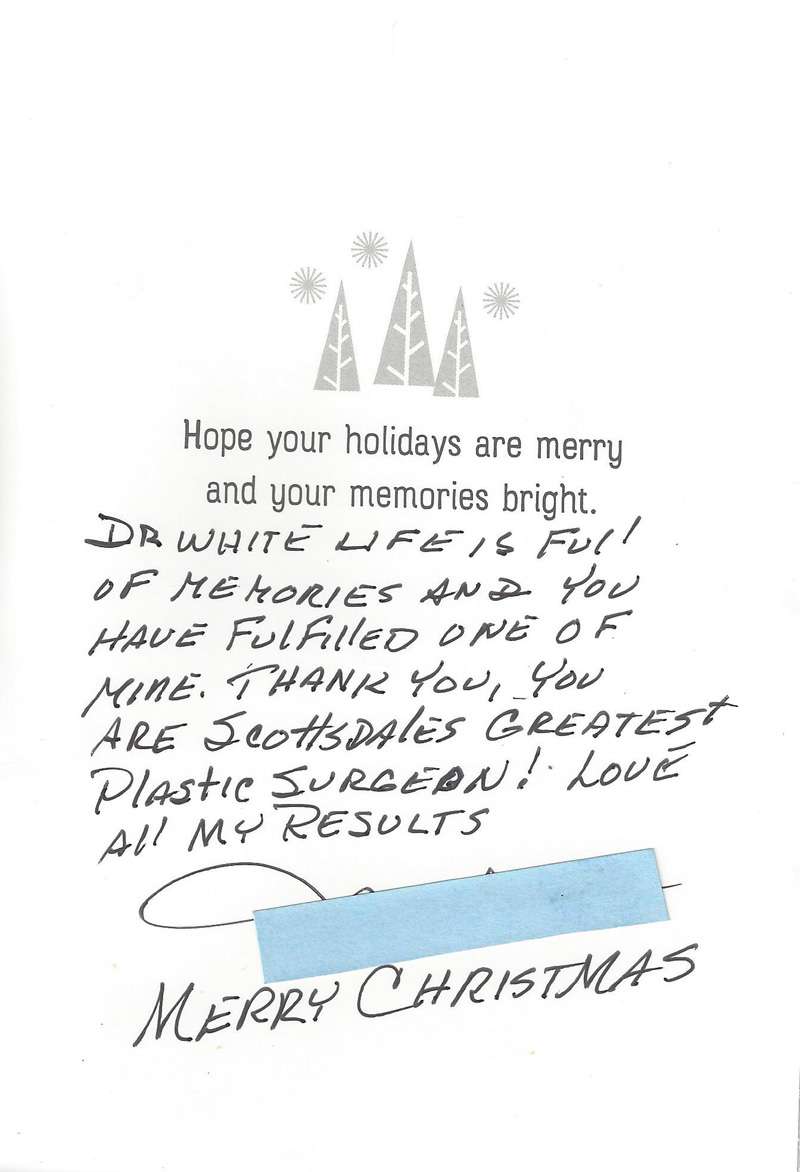 Hope your holidays are merry
and your memories bright.
DR WHITE LIFE IS FUll
OF MEMORIES AND YOU
HAVE FUlFIllED ONE OF
MINE. THANK YOU, YOU
ARE ScottSDAlES GREATEST
PlAStIC SURGEON! LOVE
All MY RESULTS
MERRY CHRISTMAS